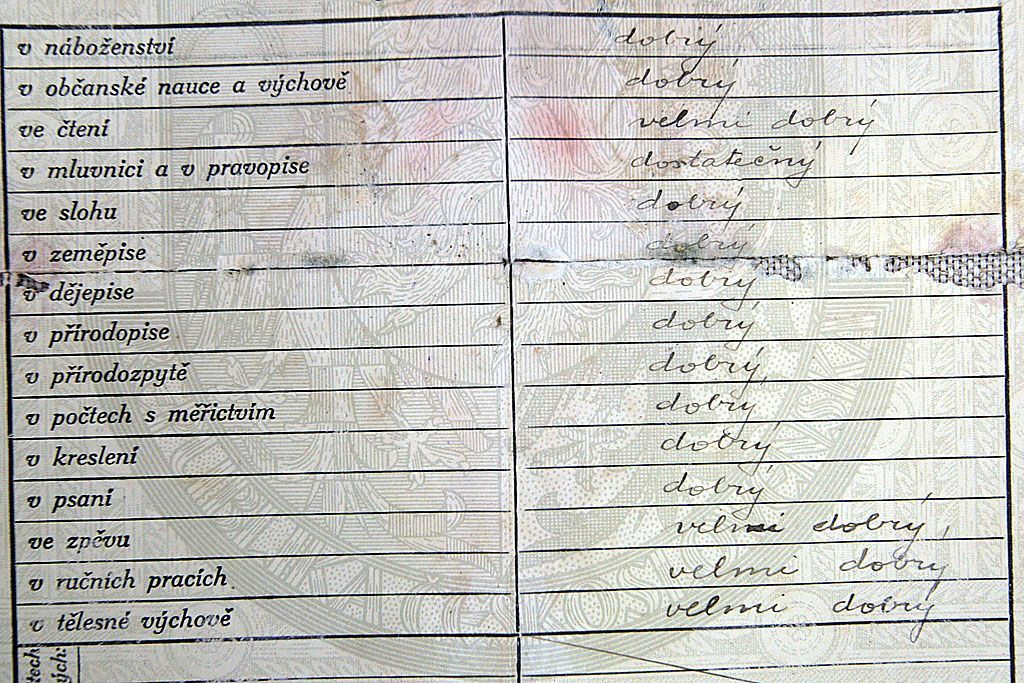 v náboženství dobrý
v občanské nauce a výchově dobrý
ve čtení velmi dobrý
v mluvnici a v pravopise dostatečný
ve slohu dobrý
v zeměpise dobrý
v dějepise dobrý
v přírodopise dobrý
v přírodozpytě dobrý
v počtech s měřictvím dobrý
v kreslení dobrý
v psaní dobrý
ve zpěvu velmi dobrý
v ručních pracích velmi dobrý
v tělesné výchově velmi dobrý